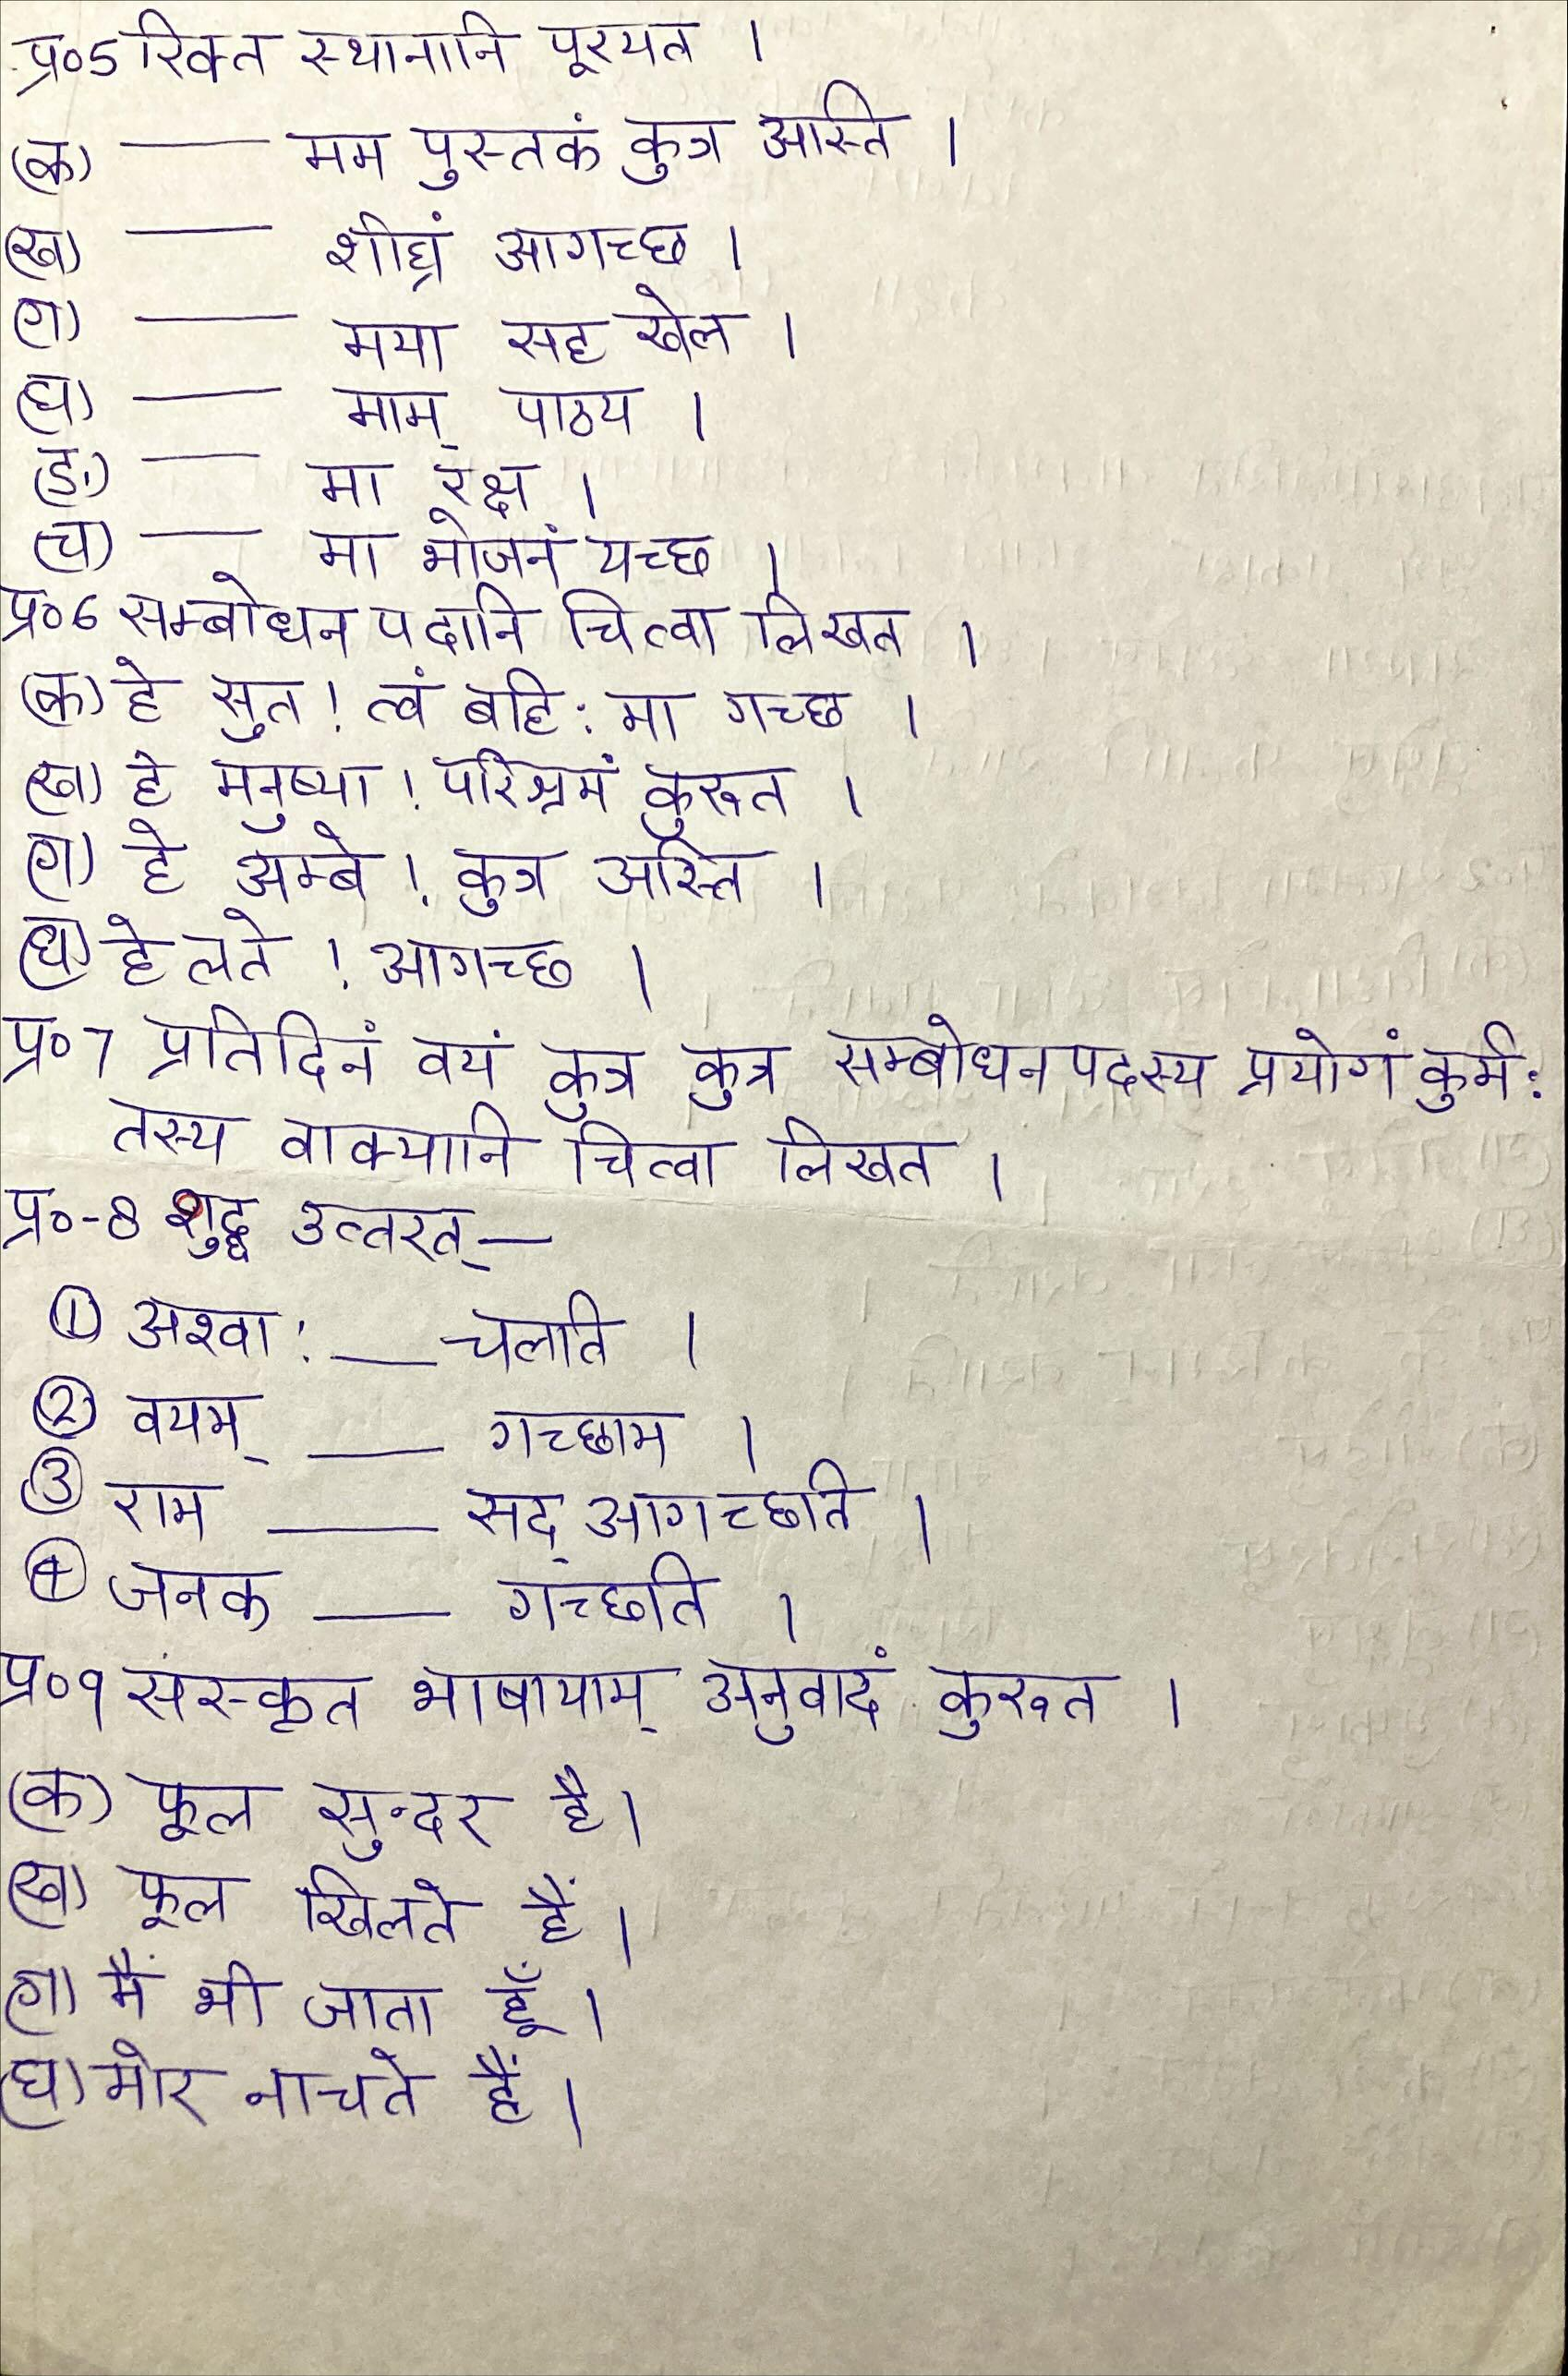 प्र०5 रिक्त स्थानानि पूरयत ।
(क) —— मम पुस्तकं कुत्र अस्ति ।
(ख) —— शीघ्रं आगच्छ ।
(ग) —— मया सह खेल ।
(घ) —— माम् पाठय ।
(ङ) —— मा रक्ष ।
(च) —— मा भोजनं यच्छ ।
प्र०6 सम्बोधन पदानि चित्वा लिखत ।
(क) हे सुत ! त्वं बहि: मा गच्छ ।
(ख) हे मनुष्या ! परिश्रमं कुरूत ।
(ग) हे अम्बे ! कुत्र अस्ति ।
(घ) हे लते ! आगच्छ ।
प्र०7 प्रतिदिनं वयं कुत्र कुत्र सम्बोधन पदस्य प्रयोगं कुर्म:
तस्य वाक्यानि चित्वा लिखत ।
प्र०-8 शुद्ध उत्तरत् —
① अश्वा: —— चलति ।
② वयम् —— गच्छाम ।
③ राम —— सद् आगच्छति ।
④ जनक —— गच्छति ।
प्र०9 संस्कृत भाषायाम् अनुवादं कुरूत ।
(क) फूल सुन्दर है।
(ख) फूल खिलते हैं।
(ग) मैं भी जाता हूँ।
(घ) मोर नाचते हैं।